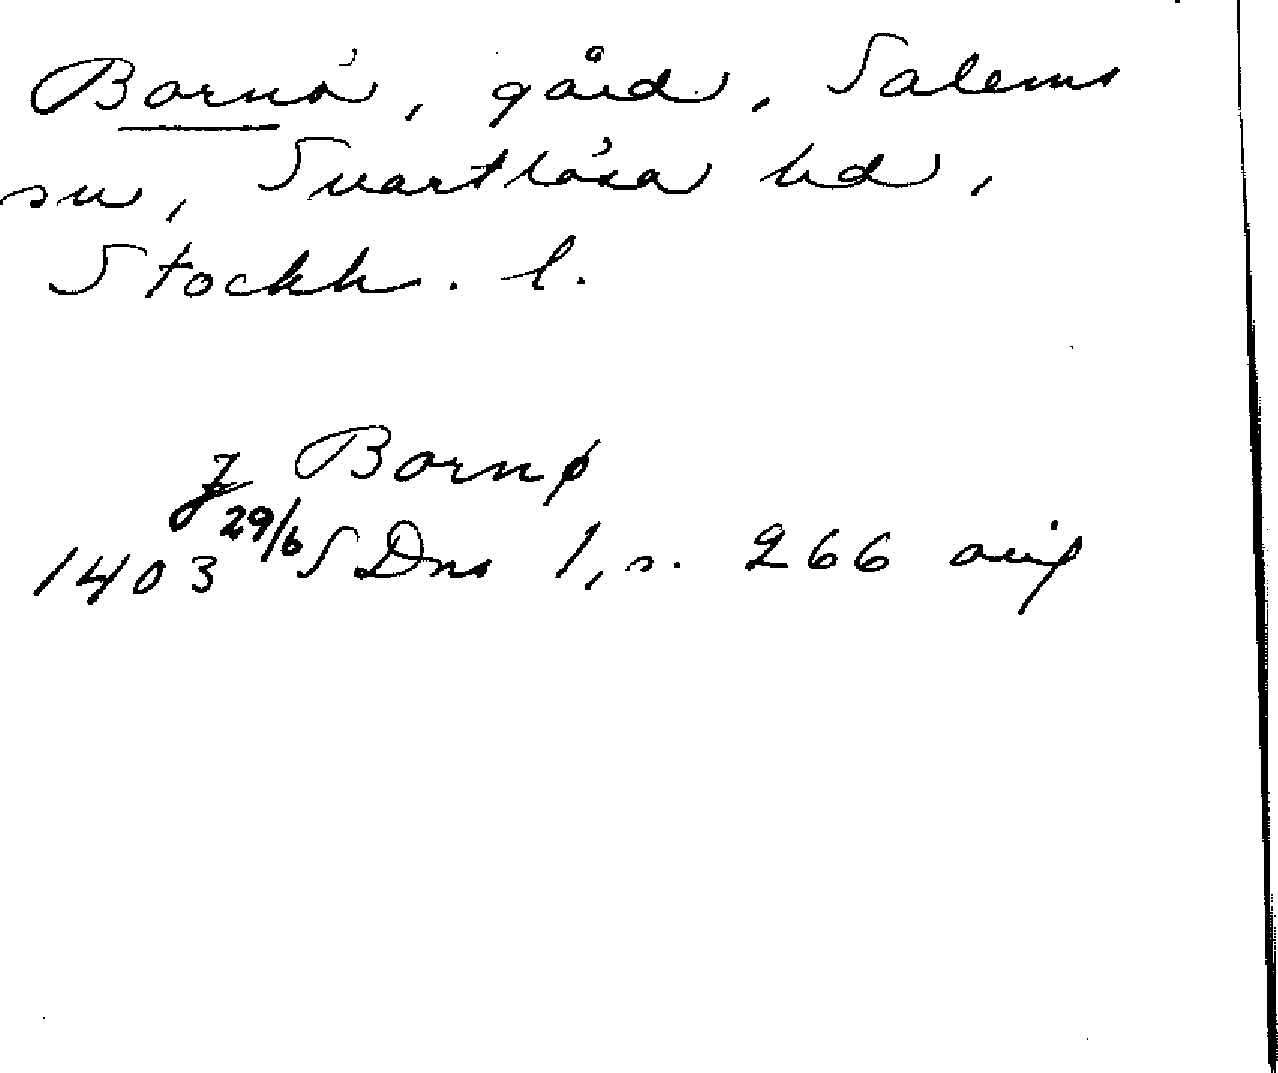 Bornö, gård, Salems
sn, Svartlösa hd,
Stockh. l.
j Bornø
1403 29/6 SDns 1, s. 266 orig